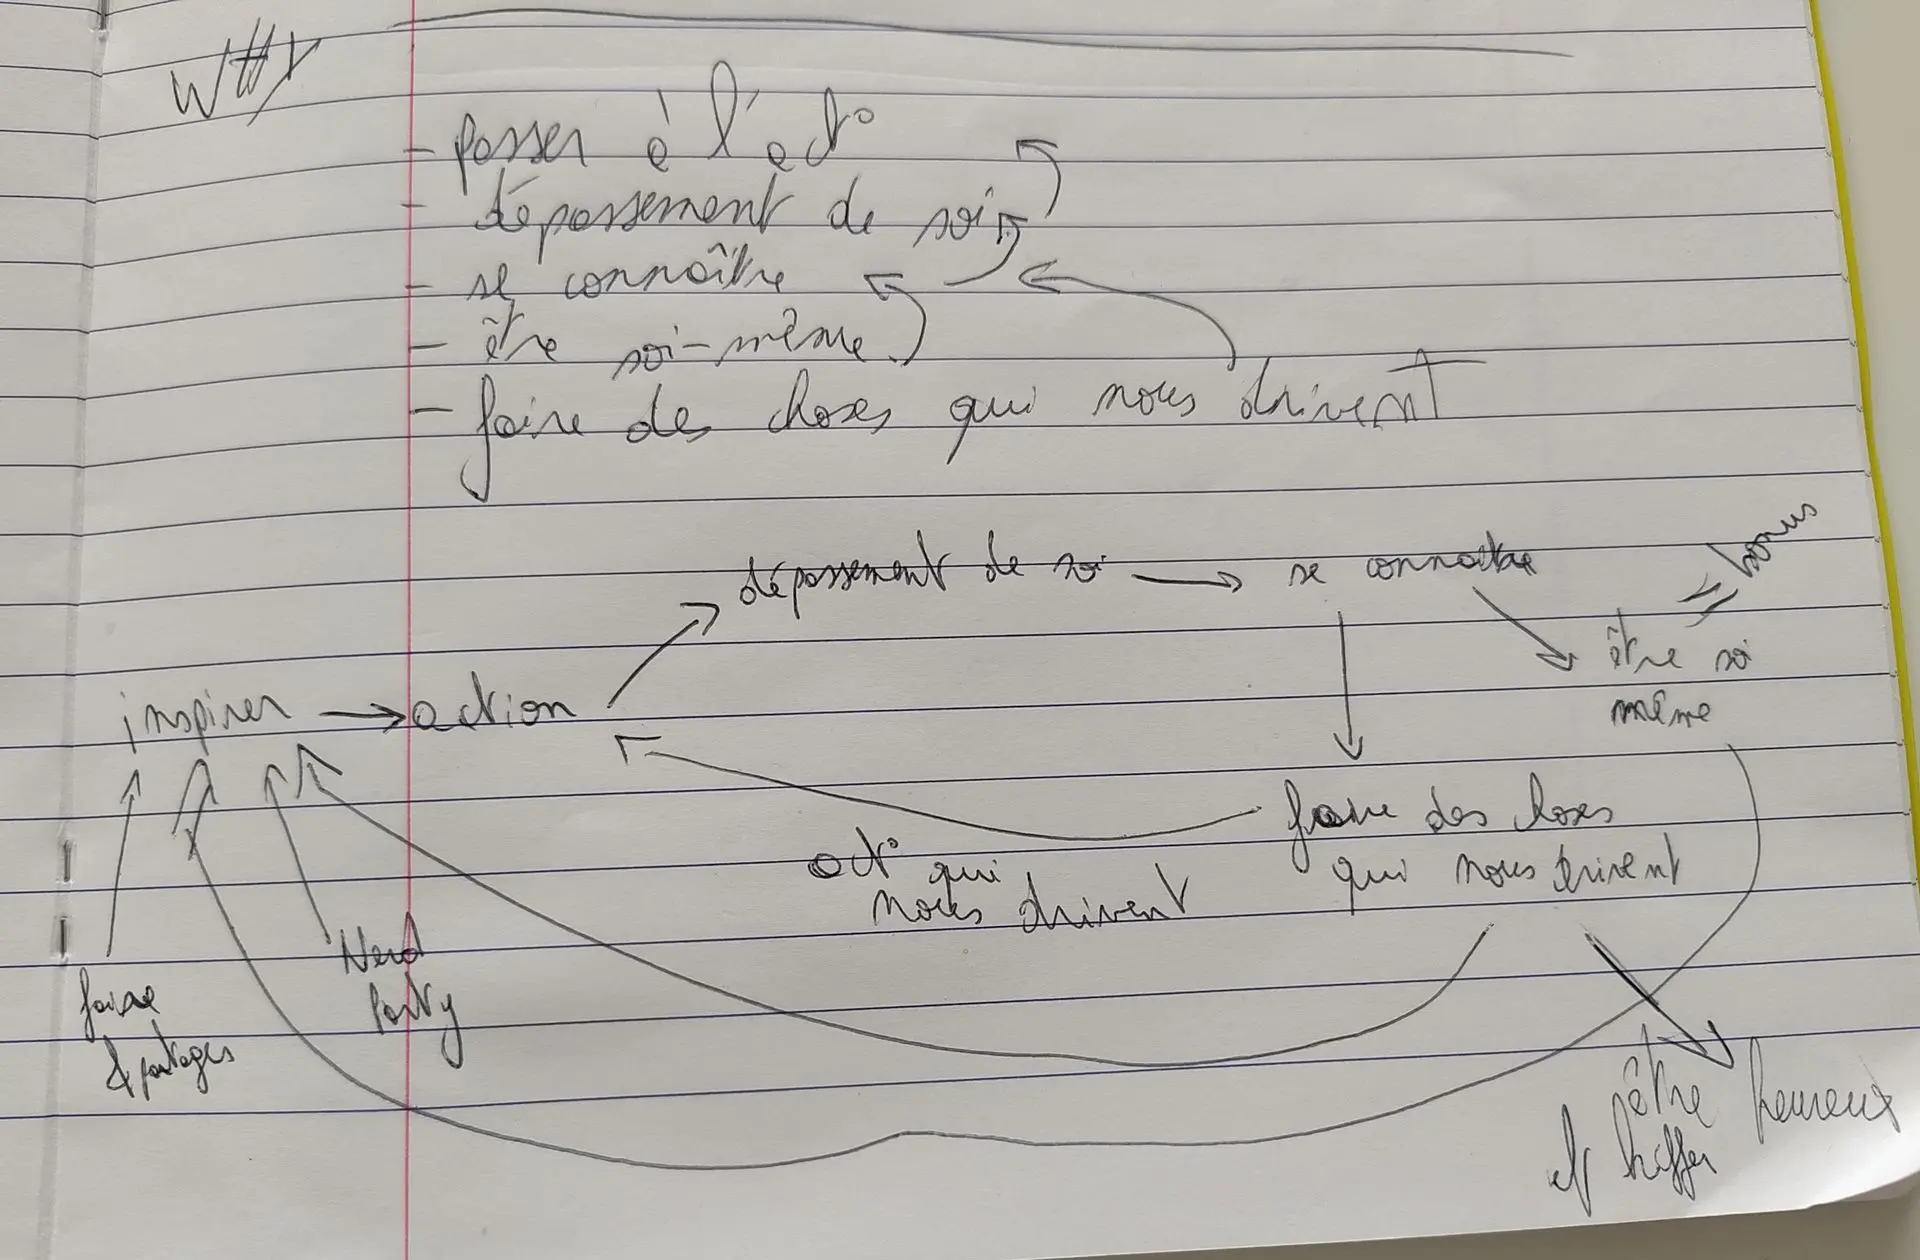 WHY
- passer à l'act°
- dépassement de soi
- se connaître
- être soi-même
- faire des choses qui nous drivent
= bonus
dépassement de soi → se connaître
être soi
même
inspirer → action
faire des choses
qui nous drivent
act° qui
nous drivent
Nerd
Party
faire
& partages
être heureux
et kiffer